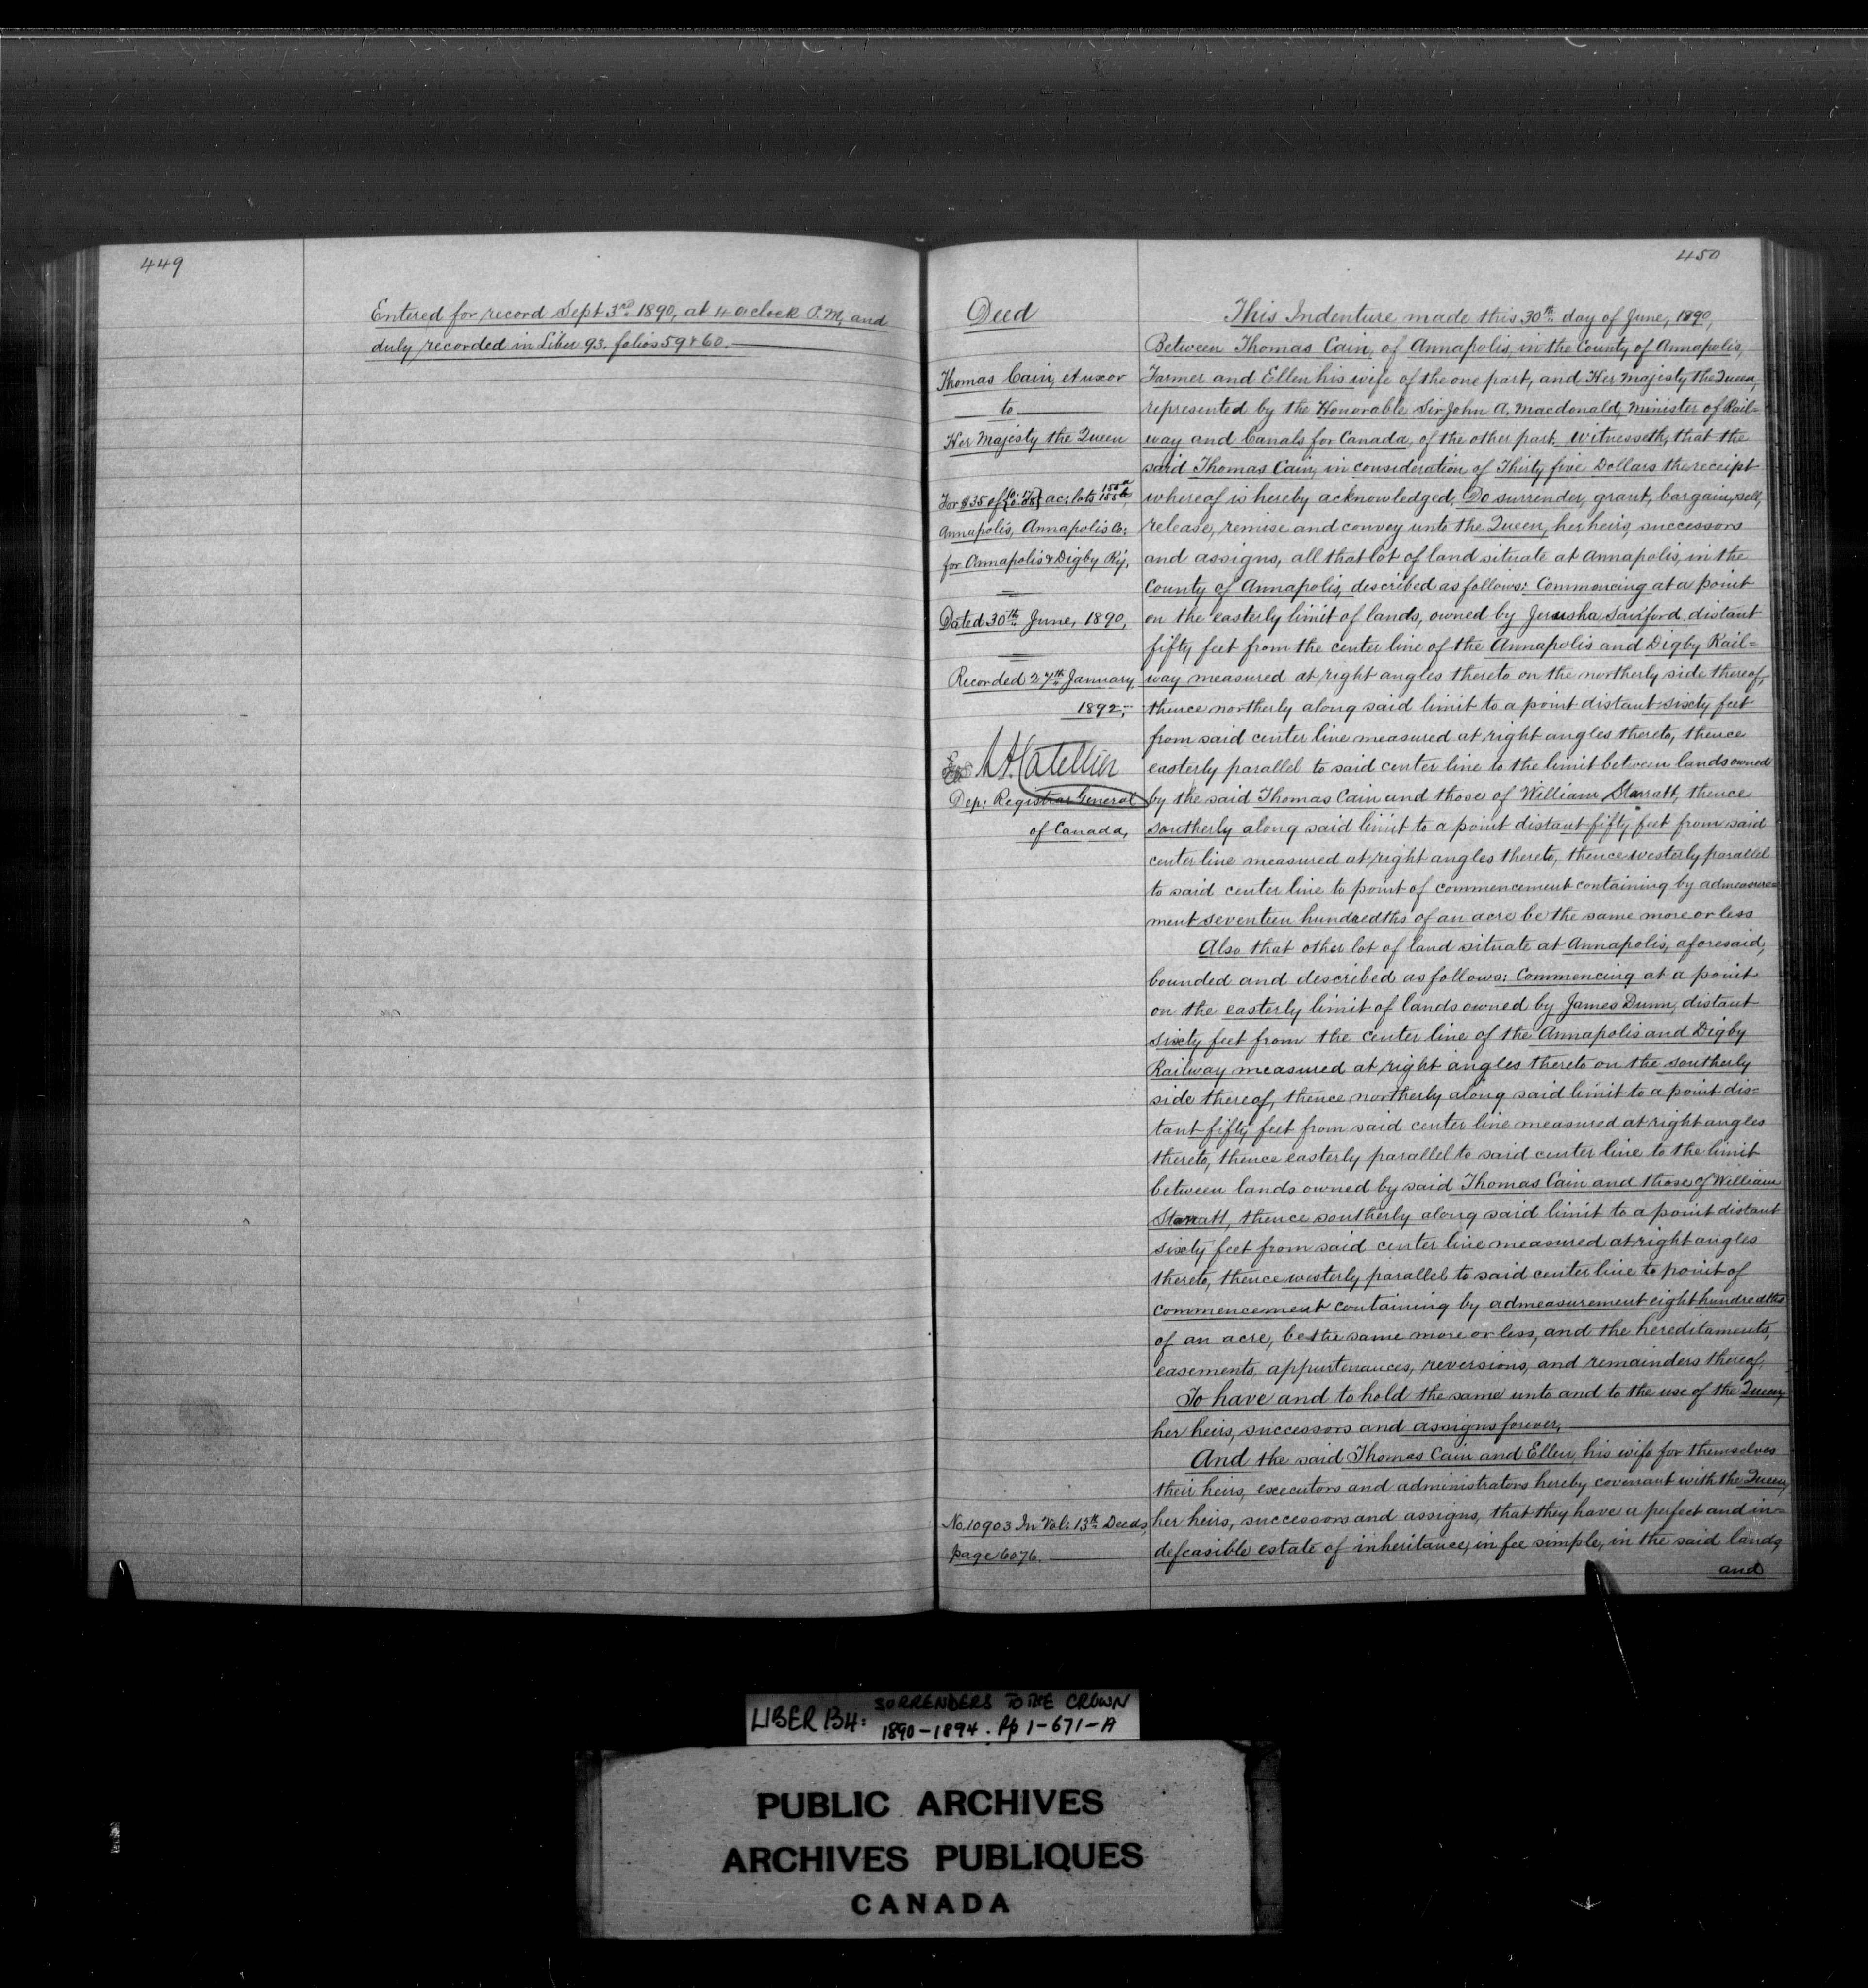 449
Entered for record Sept 3rd 1890, at 4 o'clock P.M. and
duly recorded in Liber 93. folios 59 & 60.
450
Deed
Thomas Cain, et uxor
to
Her Majesty the Queen
For $35 of {0.17 0.08} ac: lots 155a 155b,
Annapolis, Annapolis Co:
for Annapolis & Digby Ry.
Dated 30th June, 1890,
Recorded 27th January,
1892,
L.A. Catellier
Dep: Registrar General
of Canada,
No. 10903 In Vol: 13th Deeds,
page 6076.
This Indenture made this 30th day of June, 1890,
Between Thomas Cain, of Annapolis, in the County of Annapolis,
Farmer and Ellen his wife of the one part, and Her Majesty the Queen,
represented by the Honorable Sir John A. Macdonald, Minister of Rail=
way and Canals for Canada, of the other part. Witnesseth, that the
said Thomas Cain, in consideration of Thirty five Dollars the receipt
whereof is hereby acknowledged, Do surrender, grant, bargain, sell,
release, remise and convey unto the Queen, her heirs, successors
and assigns, all that lot of land situate at Annapolis, in the
County of Annapolis, described as follows: Commencing at a point
on the easterly limit of lands, owned by Jerusha Sanford distant
fifty feet from the center line of the Annapolis and Digby Rail=
way measured at right angles thereto on the northerly side thereof,
thence northerly along said limit to a point distant sixty feet
from said center line measured at right angles thereto, thence
easterly parallel to said center line to the limit between lands owned
by the said Thomas Cain and those of William Starratt, thence
southerly along said limit to a point distant fifty feet from said
center line measured at right angles thereto, thence westerly parallel
to said center line to point of commencement containing by admeasure=
ment seventeen hundredths of an acre be the same more or less
Also that other lot of land situate at Annapolis, aforesaid,
bounded and described as follows: Commencing at a point
on the easterly limit of lands owned by James Dunn, distant
sixty feet from the center line of the Annapolis and Digby
Railway measured at right angles thereto on the southerly
side thereof, thence northerly along said limit to a point dis=
tant fifty feet from said center line measured at right angles
thereto, thence easterly parallel to said center line to the limit
between lands owned by said Thomas Cain and those of William
Starratt, thence southerly along said limit to a point distant
sixty feet from said center line measured at right angles
thereto, thence westerly parallel to said center line to point of
commencement containing by admeasurement eight hundredths
of an acre, be the same more or less, and the hereditaments,
easements, appurtenances, reversions, and remainders thereof,
To have and to hold the same unto and to the use of the Queen,
her heirs, successors and assigns forever,
And the said Thomas Cain and Ellen his wife for themselves
their heirs, executors and administrators hereby covenant with the Queen,
her heirs, successors and assigns, that they have a perfect and in=
defeasible estate of inheritance, in fee simple, in the said lands,
and
LIBER B4: SURRENDERS TO THE CROWN
1890-1894. Pp 1-671-A
PUBLIC ARCHIVES
ARCHIVES PUBLIQUES
CANADA